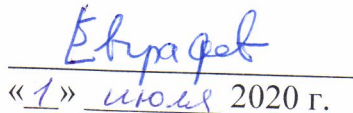 Евграфов
«1» июля 2020 г.